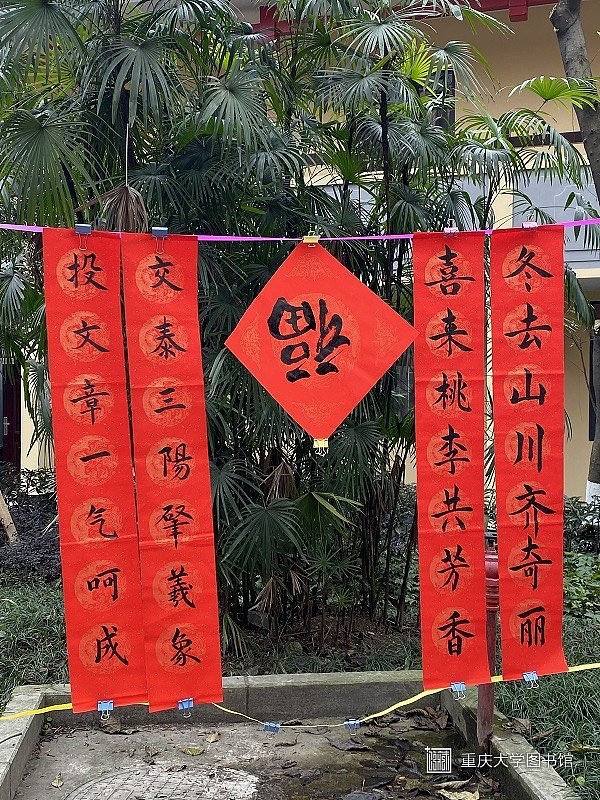 冬去山川齐奇丽
喜来桃李共芳香
福
交泰三陽肇羲象
投文章一气呵成
重庆大学图书馆